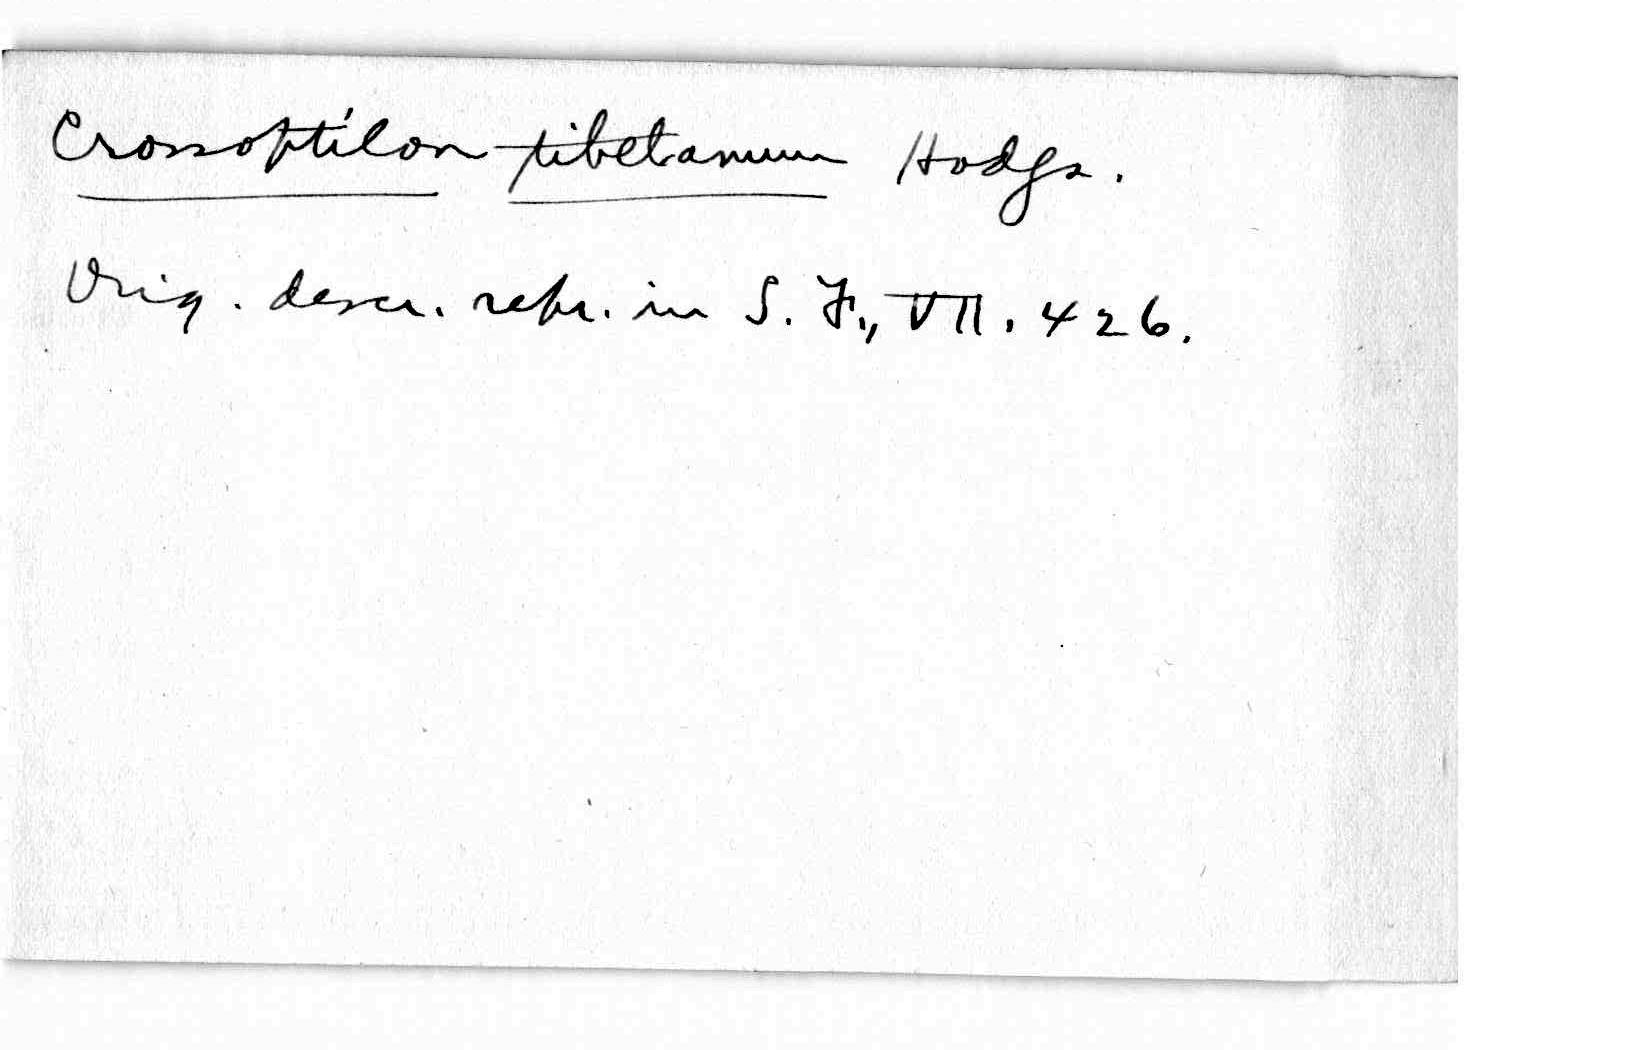 Crossoptilon tibetanum Hodgs.
Orig. descr. repr. in S. F., VII. 426.